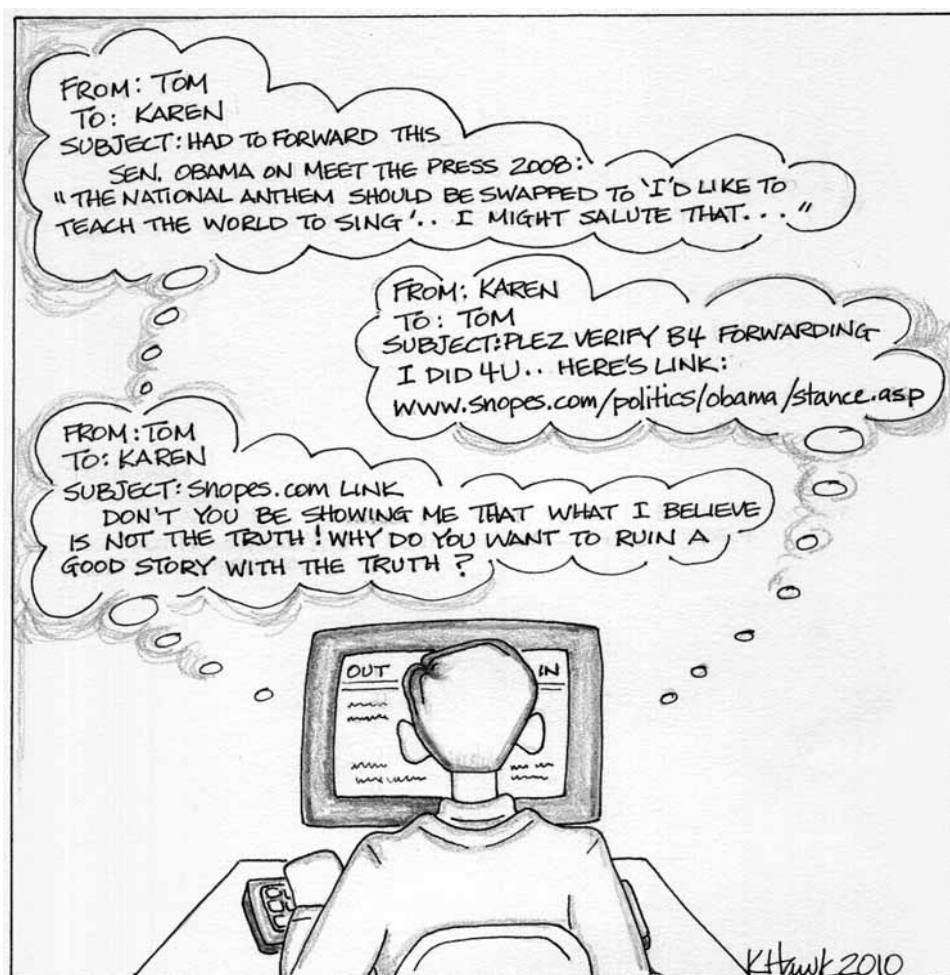 FROM: TOM
TO: KAREN
SUBJECT: HAD TO FORWARD THIS
SEN. OBAMA ON MEET THE PRESS 2008:
"THE NATIONAL ANTHEM SHOULD BE SWAPPED TO 'I'D LIKE TO
TEACH THE WORLD TO SING'.. I MIGHT SALUTE THAT..."
FROM: KAREN
TO: TOM
SUBJECT: PLEZ VERIFY B4 FORWARDING
I DID 4U.. HERE'S LINK:
www.snopes.com/politics/obama/stance.asp
FROM: TOM
TO: KAREN
SUBJECT: Snopes.com LINK
DON'T YOU BE SHOWING ME THAT WHAT I BELIEVE
IS NOT THE TRUTH! WHY DO YOU WANT TO RUIN A
GOOD STORY WITH THE TRUTH?
OUT IN
KHawk 2010